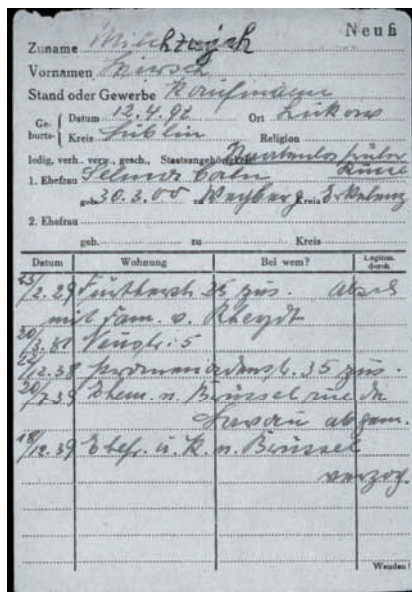 Neuß
Zuname
Vornamen Hirsch
Stand oder Gewerbe Kaufmann
Ge-burts- Datum 12.4.92 Ort Lukow
Kreis Lublin Religion
ledig, verh., verw., gesch., Staatsangehörigkeit Staatenlos früher
1. Ehefrau Selma Russe
geb. 30.3.00 zu Kreis Erkelenz
2. Ehefrau
geb. zu Kreis
Datum Wohnung Bei wem? Legitim. durch
2.29 Furtherstr. 25 zus.
mit Fam. v. Rheydt
Neustr. 5
12.38 Promenadenstr. 35 zus.
Ehem. n. Brüssel rue de
abgem.
18/12.39 Ehefr. u. K. n. Brüssel
verzog.
Wenden!